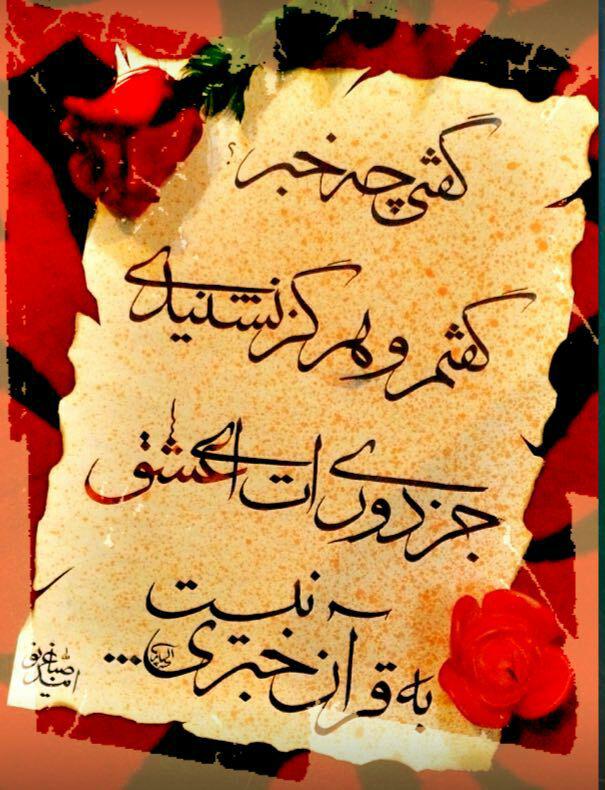 گفتی چه خبر؟
گفتم و هرگز نشنیدی
جز دوری ات ای عشق
به قرآن خبری نیست...
امید صباغ نو